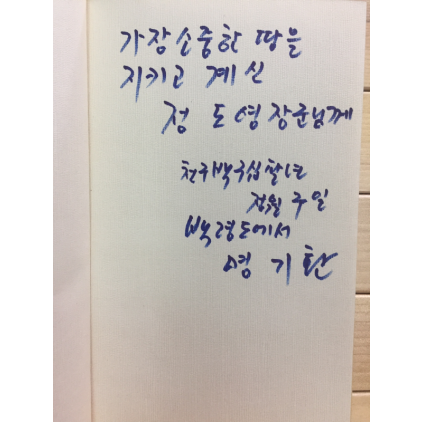 가장 소중한 땅을
지키고 계신
정도영 장군님께
천구백구십팔년
정월 구일
백령도에서
영기환